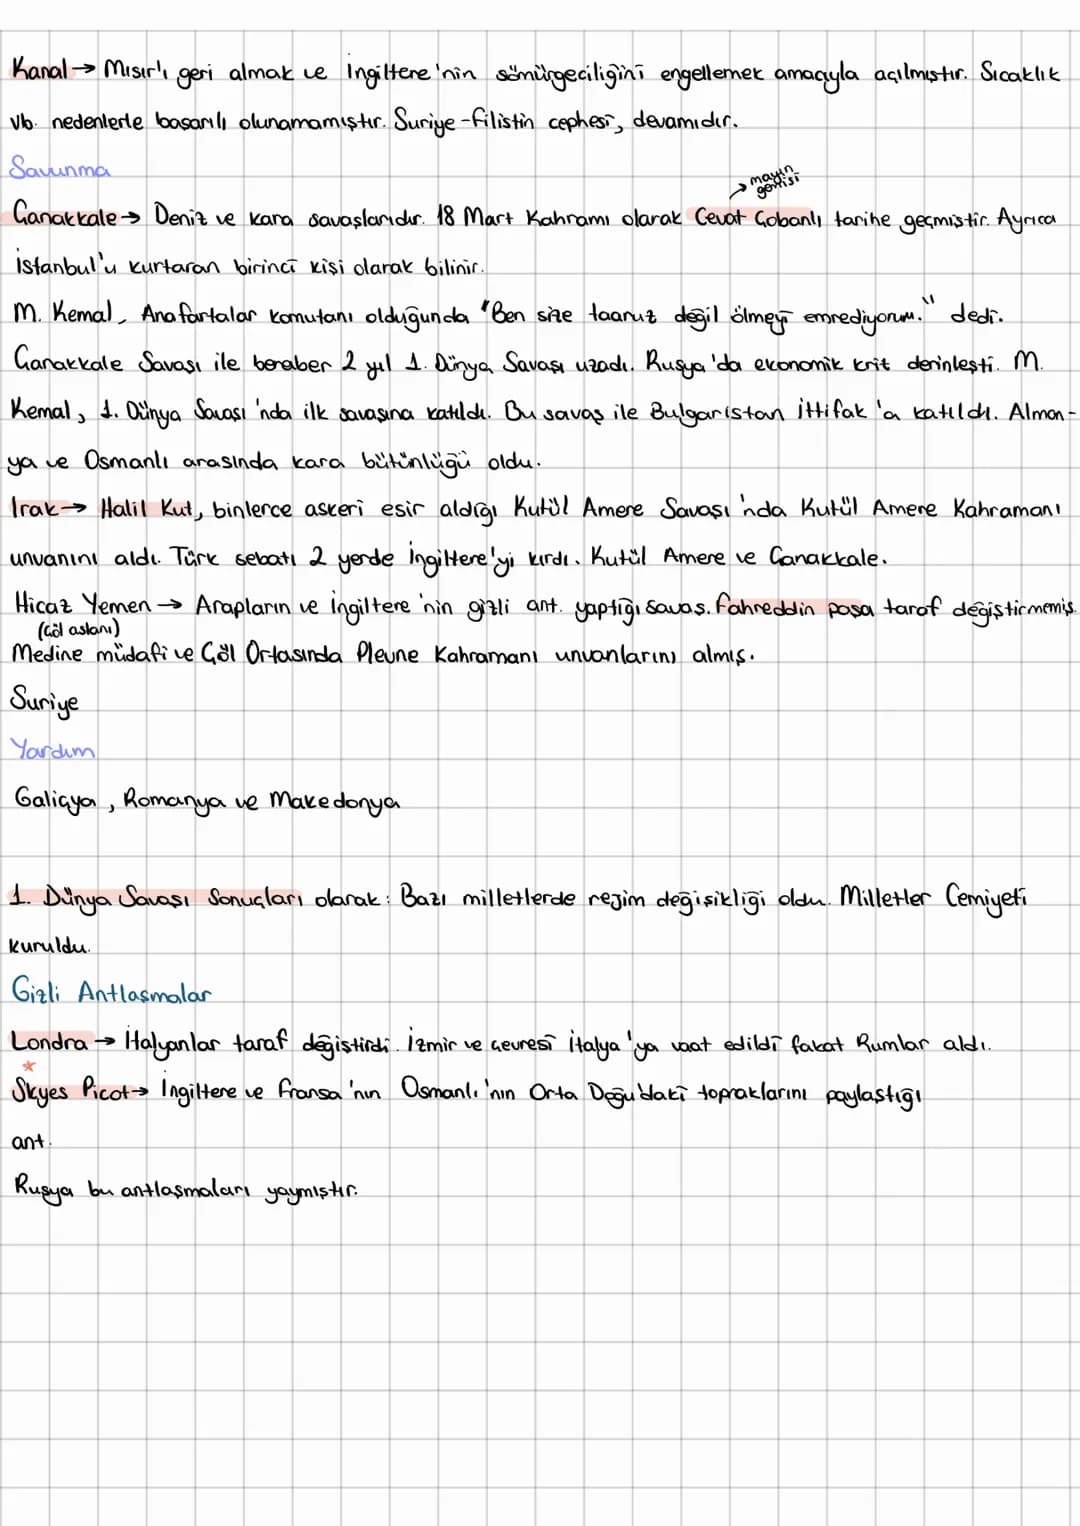 Kanal → Mısır'ı geri almak ve İngiltere'nin sömürgeciliğini engellemek amacıyla açılmıştır. Sıcaklık
vb. nedenlerle başarılı olunamamıştır. Suriye-Filistin cephesi, devamıdır.
Savunma
→ mayın
gemisi
Çanakkale → Deniz ve kara savaşlarıdır. 18 Mart Kahramı olarak Cevat Çobanlı tarihe geçmiştir. Ayrıca
İstanbul'u kurtaran birinci kişi olarak bilinir.
M. Kemal, Anafartalar komutanı olduğunda "Ben size taaruz değil ölmeyi emrediyorum." dedi.
Çanakkale Savaşı ile beraber 2 yıl 1. Dünya Savaşı uzadı. Rusya'da ekonomik krit derinleşti. M.
Kemal, 1. Dünya Savaşı'nda ilk savaşına katıldı. Bu savaş ile Bulgaristan İttifak'a katıldı. Alman-
ya ve Osmanlı arasında kara bütünlüğü oldu.
Irak → Halil Kut, binlerce askeri esir aldığı Kutül Amere Savaşı'nda Kutül Amere Kahramanı
unvanını aldı. Türk sebatı 2 yerde İngiltere'yi kırdı. Kutül Amere ve Çanakkale.
Hicaz Yemen → Arapların ve İngiltere'nin gizli ant. yaptığı savaş. Fahreddin paşa taraf değiştirmemiş.
(Çöl aslanı)
Medine müdafi ve Çöl Ortasında Plevne Kahramanı unvanlarını almış.
Suriye
Yardım
Galiçya, Romanya ve Makedonya
1. Dünya Savaşı Sonuçları olarak: Bazı milletlerde rejim değişikliği oldu. Milletler Cemiyeti
kuruldu.
Gizli Antlaşmalar
Londra → İtalyanlar taraf değiştirdi. İzmir ve çevresi İtalya'ya vaat edildi fakat Rumlar aldı.
Skyes Picot → İngiltere ve Fransa'nın Osmanlı'nın Orta Doğu'daki topraklarını paylaştığı
ant.
Rusya bu antlaşmaları yaymıştır.